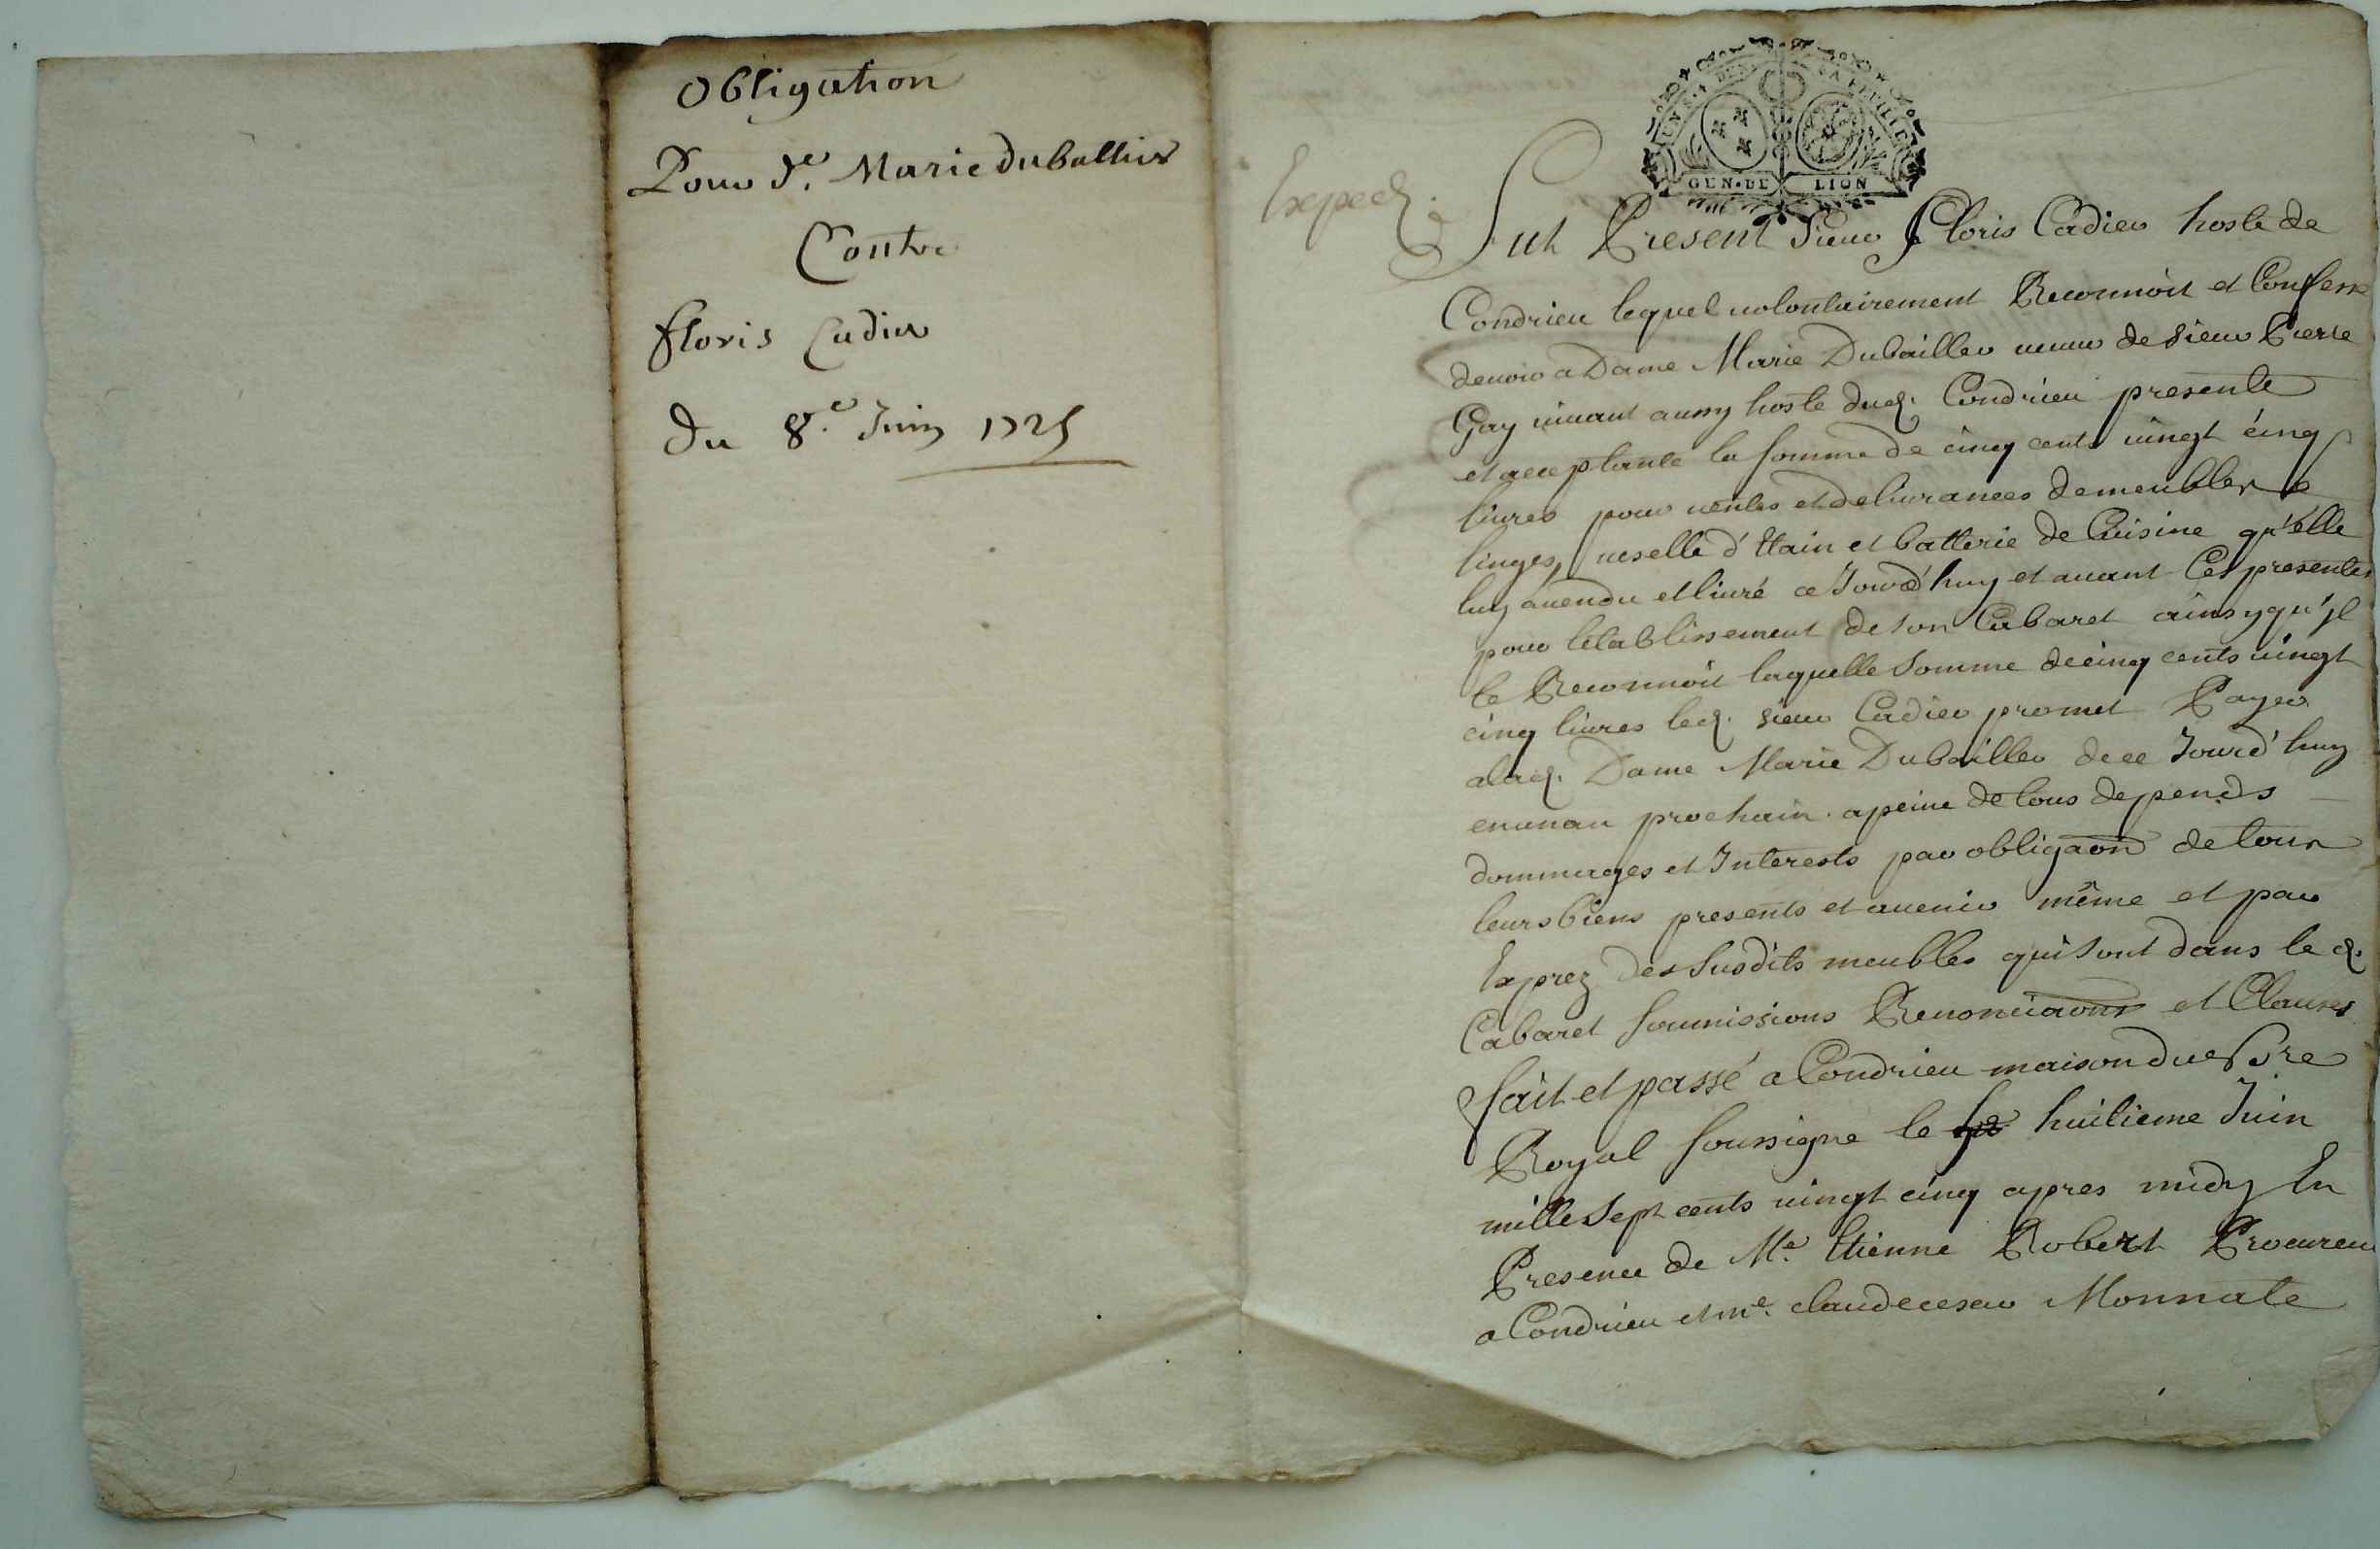 Obligation
Pour de. Marie duballier
Contre
floris Cadier
du 8.e Juin 1725
Exped.
GEN. DE LION
Fut Present Sieur floris Cadier hoste de
Condrieu lequel uolontairement Reconnoit et Confesse
deuoir a Dame Marie Duballier ueuue de sieur Pierre
Gay uiuant aussy hoste dud. Condrieu presente
et acceptante la somme de cinq cents uingt cinq
liures pour uentes et deliurances de meubles
linges, ueselle d'Etain et batterie de Cuisine qu'elle
luy a uendu et liuré ce Jourd'huy et auant Ces presentes
pour létablissement de son Cabaret ainsy qu'jl
le Reconnoit laquelle somme de cinq cents uingt
cinq liures led. sieur Cadier promet Payer
a lad. Dame Marie Duballier de ce Jourd'huy
en un an prochain a peine de tous depends
dommages et Interests par obligaon de tous
leurs biens presents et auenir même et par
Exprez des susdits meubles qui sont dans le d.
Cabaret soumissions Renonciaons et Clauses
fait et passé a Condrieu maison du nore
Royal soussigne le huitieme Juin
mille sept cents uingt cinq apres midy En
Presence de Me. Etienne Robert Procureur
a Condrieu et me. claude cesar Monnate